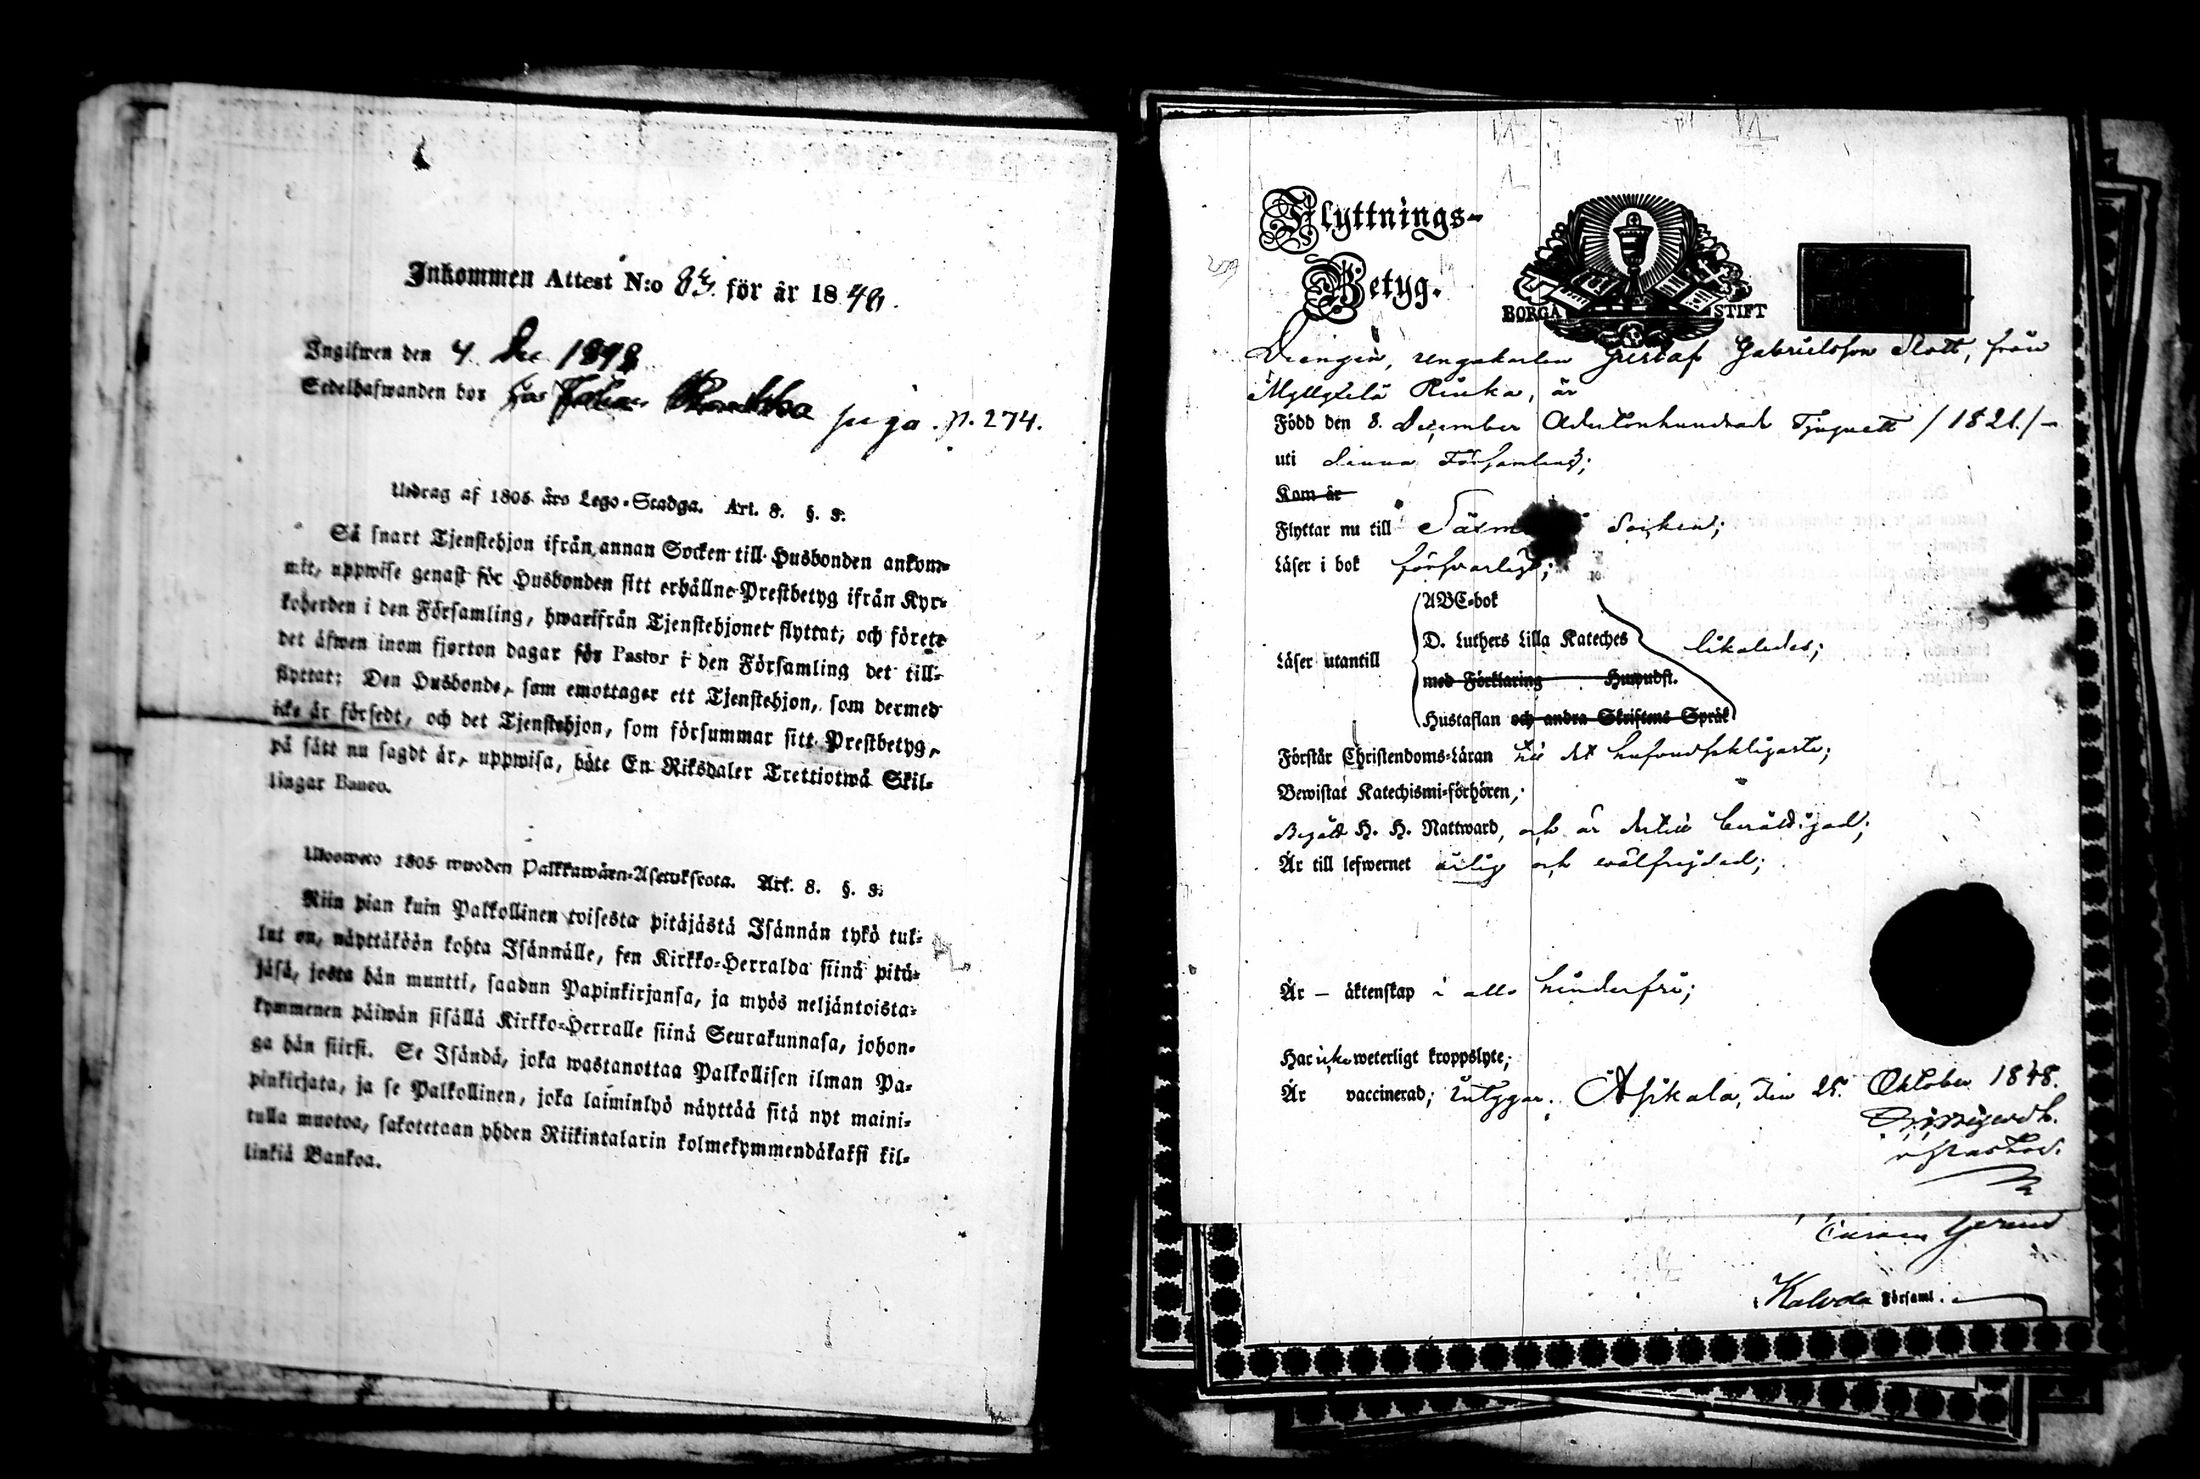 Inkommen Attest N:o 83. för år 1848.
Ingifwen den 4. Dec. 1848
Sedelhafwanden bor hos p. 274.
Utdrag af 1805 års Lego-Stadga. Art. 8. §. 3.
Så snart Tjenstehjon ifrån annan Socken till Husbonden ankom-
mit, uppwise genast för Husbonden sitt erhållne Prestbetyg ifrån Kyr-
koherden i den Församling, hwarifrån Tjenstehjonet flyttat, och förete
det äfwen inom fjorton dagar för Pastor i den Församling det till-
flyttat: Den Husbonde, som emottager ett Tjenstehjon, som dermed
icke är försedt, och det Tjenstehjon, som försummar sitt Prestbetyg,
på sätt nu sagdt är, uppwisa, böte En Riksdaler Trettiotwå Skil-
lingar Banco.
Uloswето 1805 wuoden Palkkawäen-Asetuksesta. Art. 8. §. 3.
Niin pian kuin Palkollinen toisesta pitäjästä Isännän tykö tul-
lut on, näyttäköön kohta Isännälle, sen Kirkko-Herralda siinä pitä-
jäsä, josta hän muutti, saadun Papinkirjansa, ja myös neljäntoista-
kymmenen päiwän sisällä Kirkko-Herralle siinä Seurakunnasa, johon-
ga hän siirsi. Se Isändä, joka wastanottaa Palkollisen ilman Pa-
pinkirjata, ja se Palkollinen, joka laiminlyö näyttää sitä nyt maini-
tulla muotoa, sakotetaan yhden Riikintalarin kolmekymmendäkaksi kil-
linkiä Bankoa.
Flyttnings-
Betyg.
BORGÅ STIFT
Drengen, ungakarlen Gustaf Gabrielsson Slott, från
Myllykselä Rinka, är
Född den 8. December Adertonhundrade Tjuguett /1821./-
uti denna Församling;
Kom år
Flyttar nu till Socken;
Läser i bok försvarligt;
ABC-bok
D. Luthers Lilla Kateches
Läser utantill likaledes;
med Förklaring Huwudst.
Hustaflan och andra Skriftens Språk
Förstår Christendoms-Läran till det hufvudsakligaste;
Bewistat Katechismi-förhören,
Begått H. H. Nattward, och är dertill berättigad;
Är till lefwernet ärlig och wälfrejdad;
Är – äktenskap i allo hinderfri;
Har icke weterligt kroppslyte;
Är vaccinerad; intygar; Asikala, den 25. Oktober 1848.
v. Pastor.
Kalvola Församl.